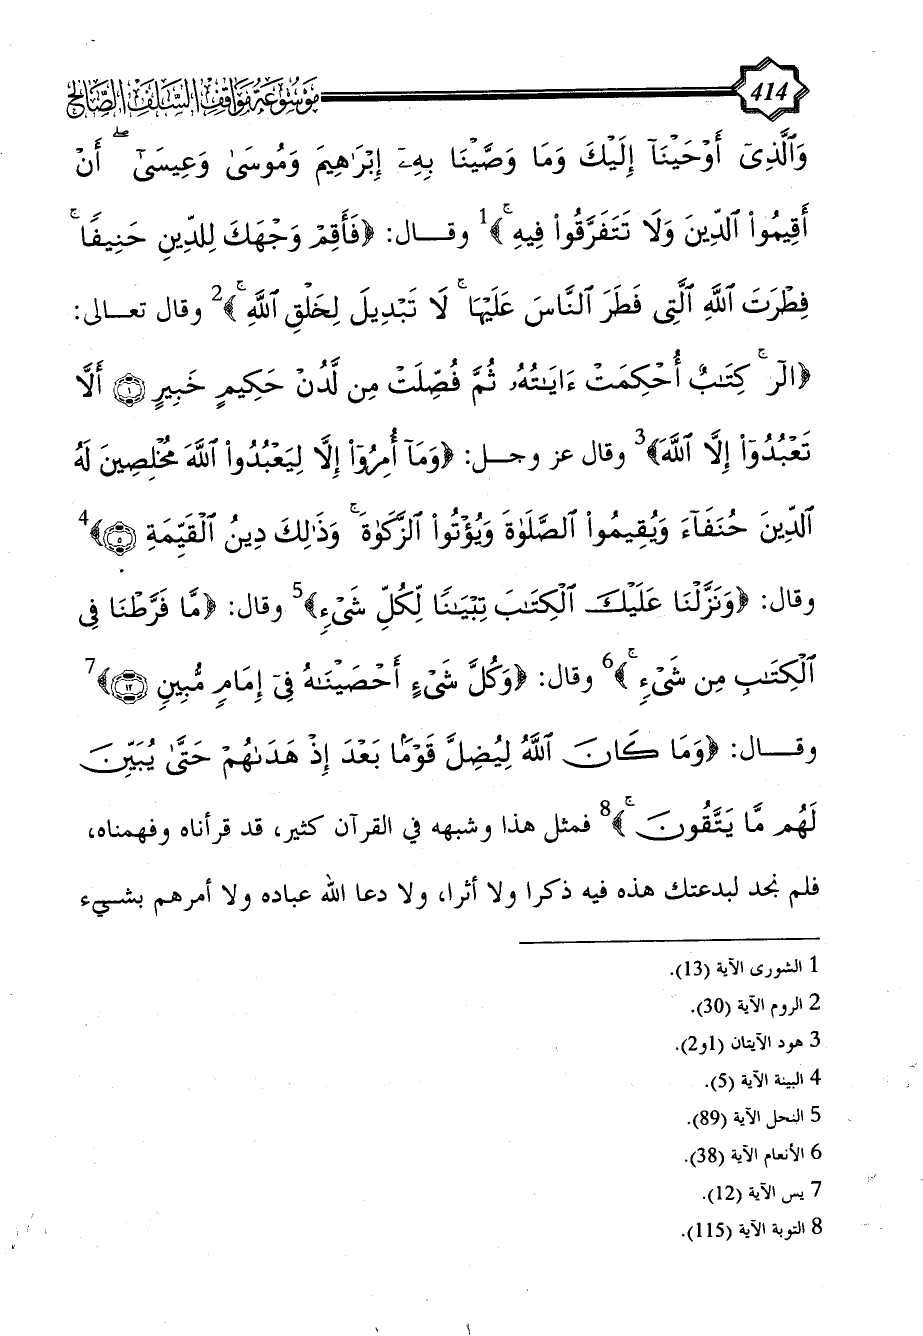 414
موسوعة مواقف السلف الصالح
وَٱلَّذِىٓ أَوْحَيْنَآ إِلَيْكَ وَمَا وَصَّيْنَا بِهِۦٓ إِبْرَٰهِيمَ وَمُوسَىٰ وَعِيسَىٰٓ ۖ أَنْ
أَقِيمُوا۟ ٱلدِّينَ وَلَا تَتَفَرَّقُوا۟ فِيهِ ۚ﴾1 وقـــال: ﴿فَأَقِمْ وَجْهَكَ لِلدِّينِ حَنِيفًا ۚ
فِطْرَتَ ٱللَّهِ ٱلَّتِى فَطَرَ ٱلنَّاسَ عَلَيْهَا ۚ لَا تَبْدِيلَ لِخَلْقِ ٱللَّهِ ۚ﴾2 وقال تعـــالى:
﴿الٓر ۚ كِتَٰبٌ أُحْكِمَتْ ءَايَٰتُهُۥ ثُمَّ فُصِّلَتْ مِن لَّدُنْ حَكِيمٍ خَبِيرٍ ١ أَلَّا
تَعْبُدُوٓا۟ إِلَّا ٱللَّهَ﴾3 وقال عز وجــل: ﴿وَمَآ أُمِرُوٓا۟ إِلَّا لِيَعْبُدُوا۟ ٱللَّهَ مُخْلِصِينَ لَهُ
ٱلدِّينَ حُنَفَآءَ وَيُقِيمُوا۟ ٱلصَّلَوٰةَ وَيُؤْتُوا۟ ٱلزَّكَوٰةَ ۚ وَذَٰلِكَ دِينُ ٱلْقَيِّمَةِ ٥﴾4
وقال: ﴿وَنَزَّلْنَا عَلَيْكَ ٱلْكِتَٰبَ تِبْيَٰنًا لِّكُلِّ شَىْءٍ﴾5 وقال: ﴿مَّا فَرَّطْنَا فِى
ٱلْكِتَٰبِ مِن شَىْءٍ ۚ﴾6 وقال: ﴿وَكُلَّ شَىْءٍ أَحْصَيْنَٰهُ فِىٓ إِمَامٍ مُّبِينٍ ١٢﴾7
وقـــال: ﴿وَمَا كَانَ ٱللَّهُ لِيُضِلَّ قَوْمًۢا بَعْدَ إِذْ هَدَىٰهُمْ حَتَّىٰ يُبَيِّنَ
لَهُم مَّا يَتَّقُونَ ۚ﴾8 فمثل هذا وشبهه في القرآن كثير، قد قرأناه وفهمناه،
فلم نجد لبدعتك هذه فيه ذكرا ولا أثرا، ولا دعا الله عباده ولا أمرهم بشــيء
1 الشورى الآية (13).
2 الروم الآية (30).
3 هود الآيتان (1و2).
4 البينة الآية (5).
5 النحل الآية (89).
6 الأنعام الآية (38).
7 يس الآية (12).
8 التوبة الآية (115).